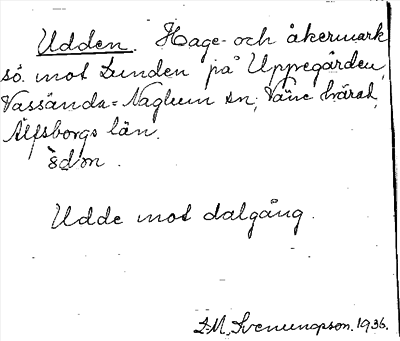 Udden. Hage- och åkermark
sö. mot Lunden på Uppegården,
Vassända-Naglum sn, Väne härad,
Älfsborgs län.
Udde mot dalgång.
L.M. Svenungsson. 1936.